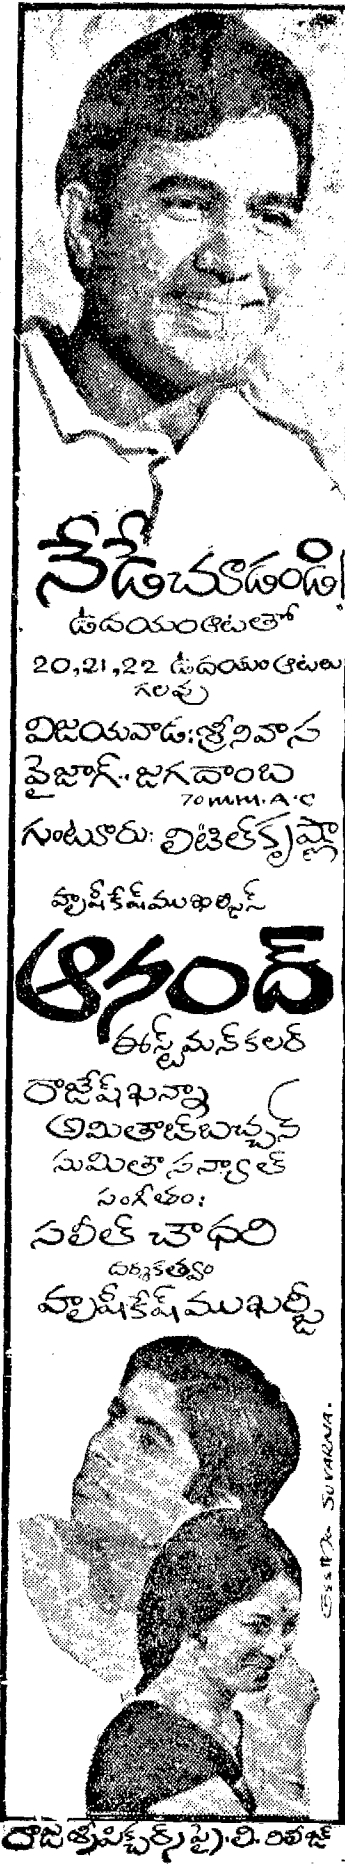 నేడే చూడండి
ఉదయం ఆటతో
20,21,22 ఉదయం ఆటలు
గలవు
విజయవాడ: శ్రీనివాస
వైజాగ్.. జగదాంబ
70 M.M. A.C
గుంటూరు: లిటిల్ కృష్ణా
హృషీకేష్ ముఖర్జీస్
ఆనంద్
ఈస్ట్ మన్ కలర్
రాజేష్ ఖన్నా
అమితాబ్ బచ్చన్
సుమితా సన్యాల్
సంగీతం:
సలీల్ చౌధరి
దర్శకత్వం
హృషీకేష్ ముఖర్జీ
SUVARNA.
రాజశ్రీ పిక్చర్స్ ప్రై.లి. రిలీజ్